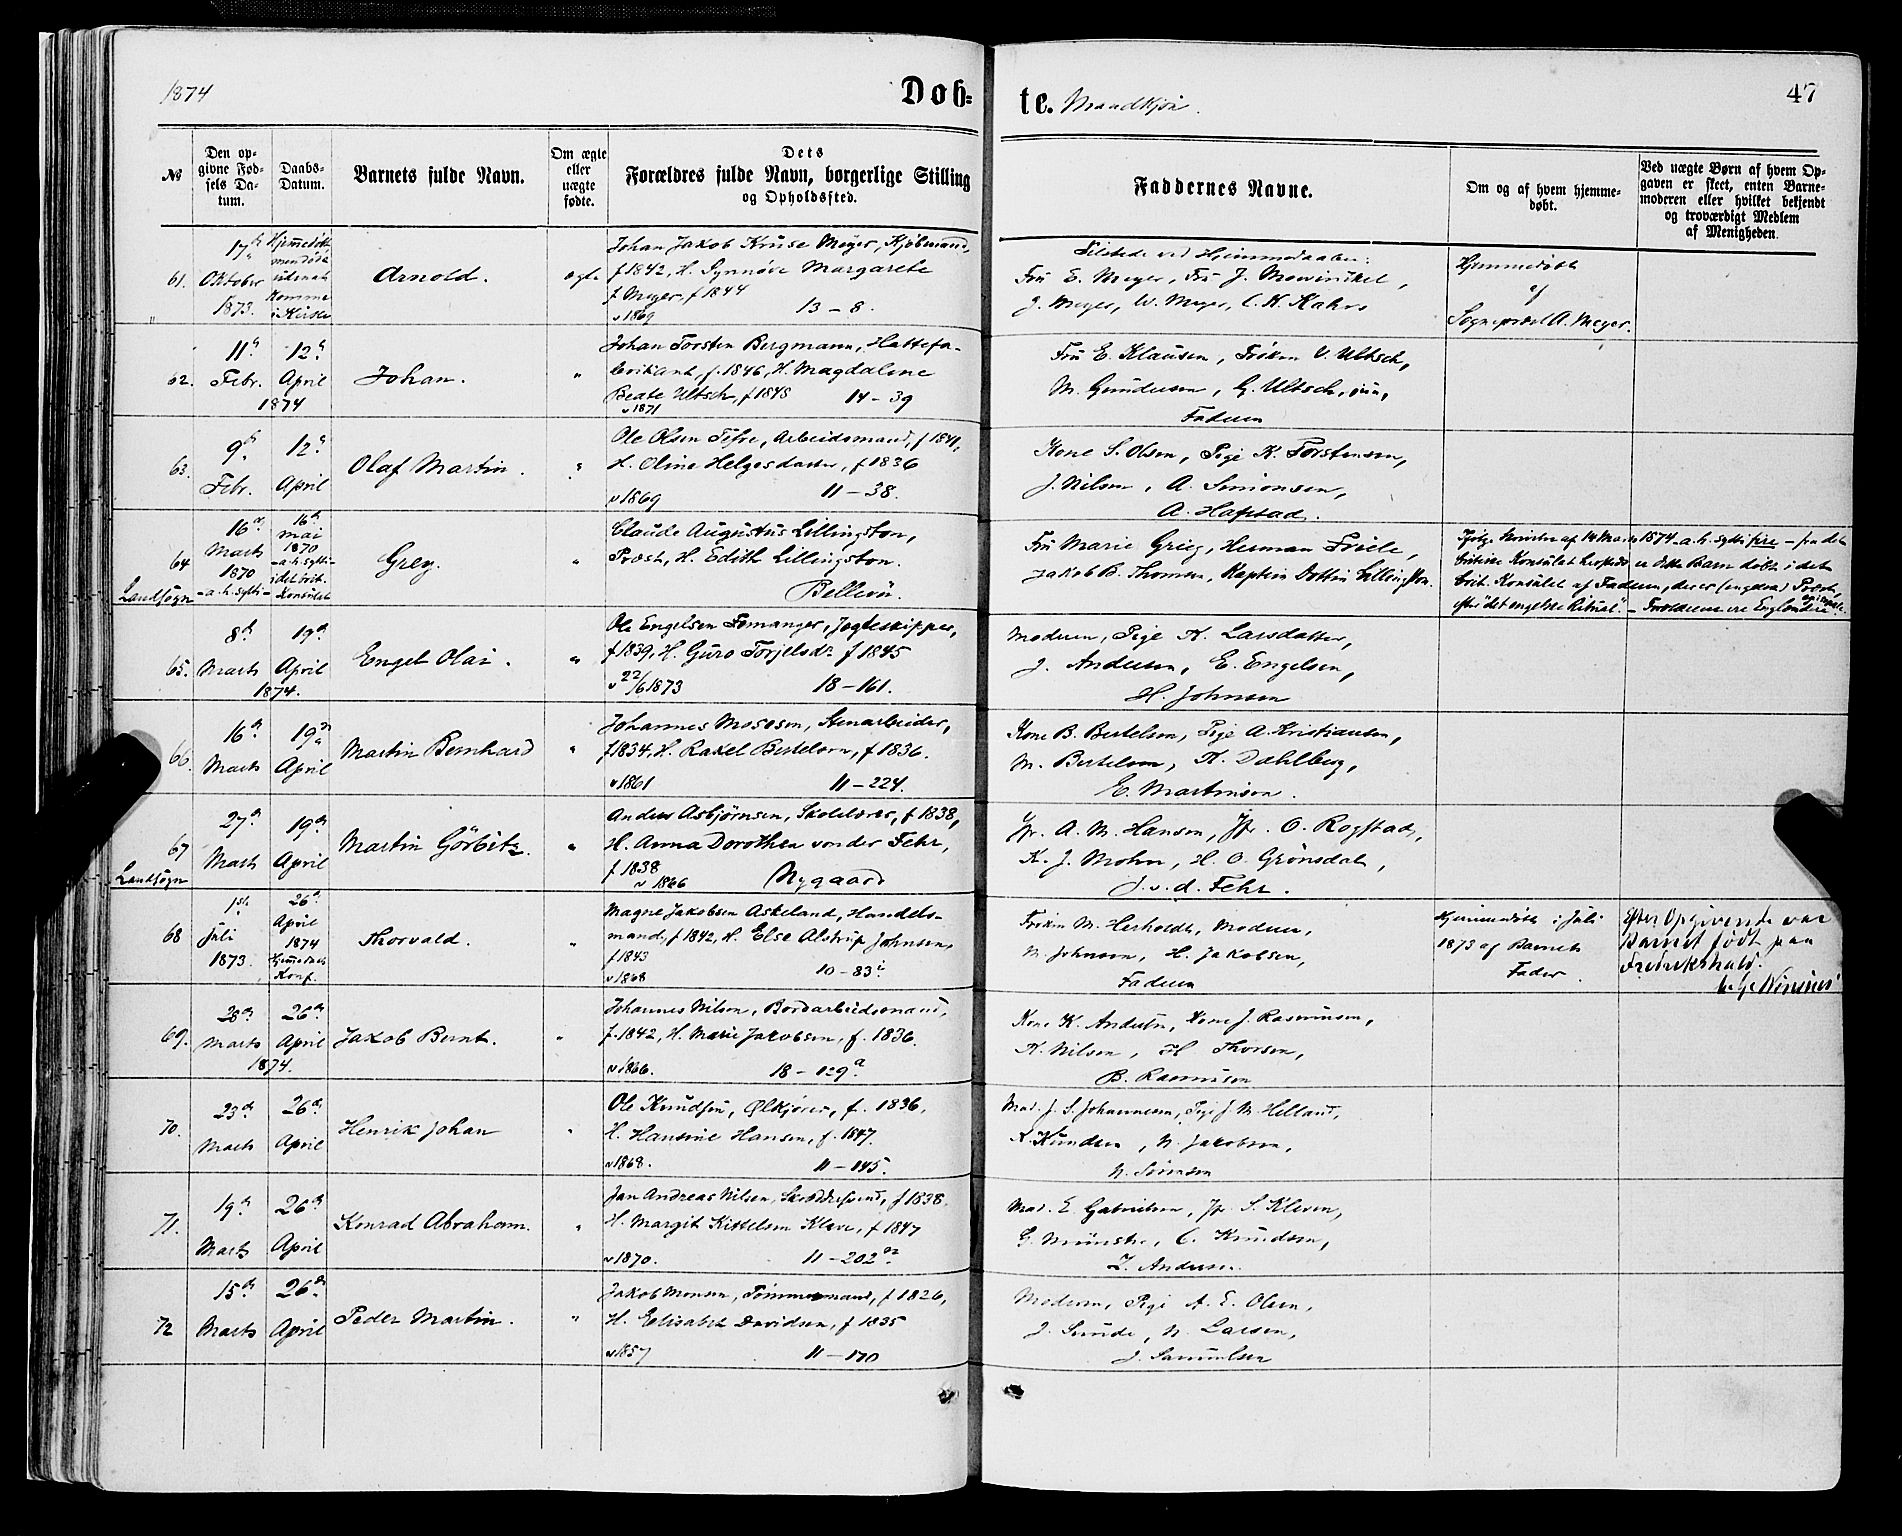 1874
Døb=
te. Mandkjøn.
47
№
Den op-
givne Fød-
sels Da-
tum.
Daabs-
Datum.
Barnets fulde Navn.
Om ægte
eller
uægte
fødte.
Dets
Forældres fulde Navn, borgerlige Stilling
og Opholdssted.
Faddernes Navne.
Om og af hvem hjemme-
døbt.
Ved uægte Børn af hvem Op-
gaven er skeet, enten Barne-
moderen eller hvilket bekjendt
og troværdigt Medlem
af Menigheden.
61.
17de
Oktober
1873.
Hjemmedøbt
men døde
uden at
komme
i Kirke
Arnold.
ægte
Johan Jakob Kruse Meyer, Kjøbmand,
f 1842, H. Synnøve Margarete
f. Meyer, f 1844
v 1869 13 – 8.
Tilstede ved Hjemmedaaben:
Fru E. Meyer, Fru J. Mowinckel,
J. Meyer, W. Meyer, C. K. Kahrs
Hjemmedøbt
af
Sognepræst A. Meyer.
62.
11te 12te
Febr. April
1874
Johan.
"
Johan Torsten Bergmann, Hattefa-
brikant, f. 1846, H. Magdalene
Beate Ultsch, f 1848 14 – 39
v 1871
Fru E. Klausen, Frøken V. Ultsch,
M. Gundersen, G. Ultsch, jun,
Faderen
63.
9de 12te
Febr. April
Olaf Martin.
"
Ole Olsen Tifre, Arbeidsmand, f 1841,
H. Oline Helgesdatter, f 1836
v 1869 11 – 38.
Kone S. Olsen, Pige K. Torstensen,
J. Nilsen, A. Simonsen,
A. Hafstad.
64
Landsogn
16de
Marts
1870
– a. h. sytti –
16de
Mai
1870
– a. h. sytti –
i det brit.
Konsulat
Grey.
"
Claude Augustus Lillingston,
Præst, H. Edith Lillingston.
Bellevü.
Fru Marie Grieg, Herman Friele,
Jakob B. Thomsen, Kaptein Dottin Lillingston.
Ifølge Ministe af 14 Marts 1874 – a. h. sytti fire – fra det
britiske Konsulat herpaa er dette Barn døbt i det
brit. Konsulat af Faderen, der er (engelsk) Præst,
efter "det engelske Ritual". – Forældrene ere Englændere.
65.
8de 19de
Marts April
1874.
Engel Olai.
"
Ole Engelsen Fomanger, Jagteskipper,
f 1839, H. Guro Torjelsdr. f 1845
v 22/6 1873 18 – 161.
Moderen, Pige K. Larsdatter,
J. Andersen, E. Engelsen,
H. Johnsen
66.
16de 19de
Marts April
Martin Bernhard
"
Johannes Mosesen, Stenarbeider,
f 1834, H. Rakel Bertelsen, f 1836.
v 1861 11 – 224.
Kone B. Bertelsen, Pige A. Kristiansen,
M. Bertelsen, K. Dahlberg,
E. Martinson.
67
Landsogn
27de 19de
Marts April
Martin Görbitz.
"
Anders Asbjørnsen, Skolelærer, f 1838,
H. Anna Dorothea von der Fehr,
f 1838
v 1866 Nygaard
Jfr. A. M. Hansen, Jfr. O. Rogstad,
K. J. Mohn, H. O. Grønsdal,
J. v. d. Fehr.
68
1ste
Juli
1873.
26de
April
1874
Hjemmedaab
Konf.
Thorvald.
"
Magne Jakobsen Askeland, Handels-
mand, f 1842, H. Else Alstrup Johnsen,
f 1843
v 1868 10 – 83
Frøken M. Herholdt, Moderen,
M. Johnson, H. Jakobsen,
Faderen
Hjemmedøbt i Juli
1873 af Barnets
Fader.
Efter Opgivende var
Barnet født paa
Fredrikshald.
69.
28de 26de
Marts April
1874.
Jakob Bernt.
"
Johannes Nilsen, Bordarbeidsmand,
f. 1842, H. Marie Jakobsen, f. 1836.
v 1866. 18 – 129a
Kone K. Andersen, Kone J. Rasmussen,
K. Nilsen, H Thorsen,
B. Rasmussen
70.
23de 26de
Marts April
Henrik Johan
"
Ole Knudsen, Ølkjører, f. 1836,
H. Hansine Hansen, f. 1847.
v 1868. 11 – 145.
Mad. J. S. Johannesen, Pige J. M. Helland,
K. Knudsen, N. Jakobsen,
N. Sørensen
71.
19de 26de
Marts April
Konrad Abraham.
"
Jan Andreas Nilsen, Skræddersvend, f 1838.
H. Margit Kittelsen Klare, f 1847
v 1870. 11 – 202
Mad. E. Gabrielsen, Jfr. S. Kleven,
G. Münster, C. Knudsen,
Z. Andersen.
72
15de 26de
Marts April
Peder Martin.
"
Jakob Monsen, Tømmermand, f 1826,
H. Elisabet Davidsen, f 1835
v 1857 11 – 170
Moderen, Pige A. E. Olsen,
J. Sunde, N. Larsen,
J. Samuelsen